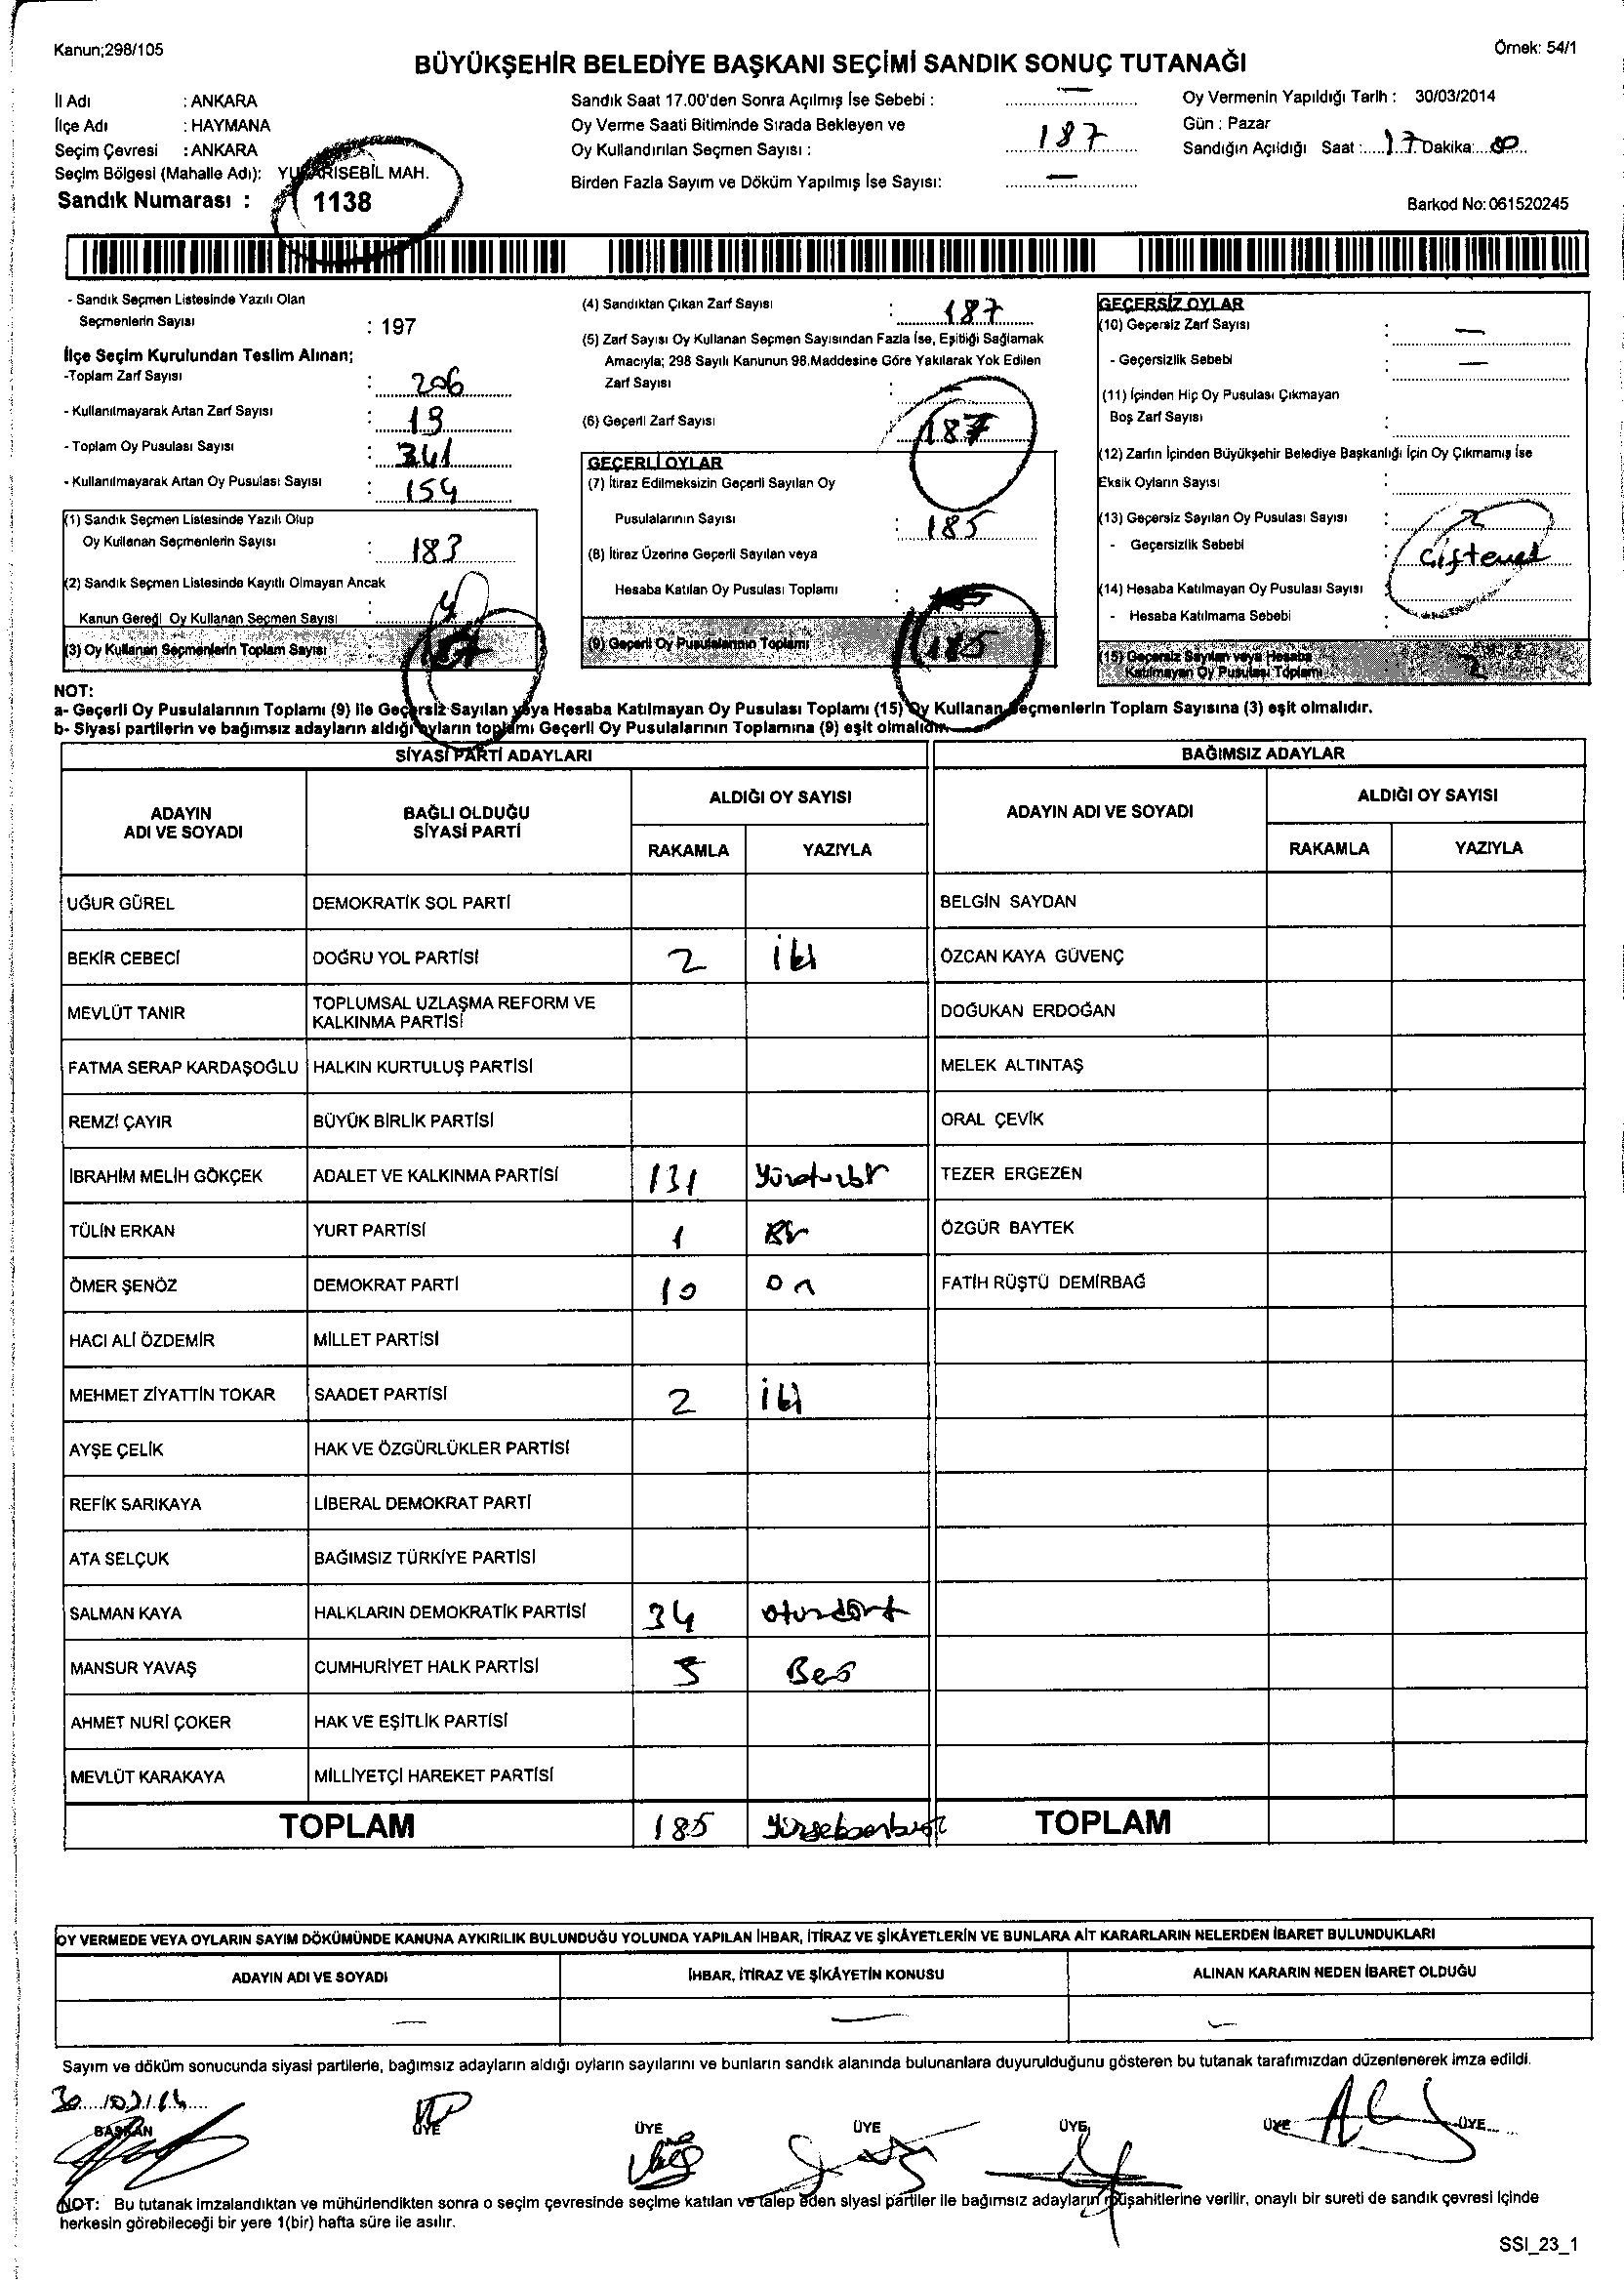 Kanun;298/105
Örnek: 54/1
BÜYÜKŞEHİR BELEDİYE BAŞKANI SEÇİMİ SANDIK SONUÇ TUTANAĞI
İl Adı : ANKARA
İlçe Adı : HAYMANA
Seçim Çevresi : ANKARA
Seçim Bölgesi (Mahalle Adı): YUKARISEBİL MAH.
Sandık Numarası : 1138
Sandık Saat 17.00'den Sonra Açılmış İse Sebebi : —
Oy Verme Saati Bitiminde Sırada Bekleyen ve
Oy Kullandırılan Seçmen Sayısı : 187
Birden Fazla Sayım ve Döküm Yapılmış İse Sayısı: —
Oy Vermenin Yapıldığı Tarih : 30/03/2014
Gün : Pazar
Sandığın Açıldığı Saat :.....17 Dakika:...00..
Barkod No: 061520245
- Sandık Seçmen Listesinde Yazılı Olan
Seçmenlerin Sayısı : 197
İlçe Seçim Kurulundan Teslim Alınan;
-Toplam Zarf Sayısı : 206
- Kullanılmayarak Artan Zarf Sayısı : 19
- Toplam Oy Pusulası Sayısı : 341
- Kullanılmayarak Artan Oy Pusulası Sayısı : 154
(1) Sandık Seçmen Listesinde Yazılı Olup
Oy Kullanan Seçmenlerin Sayısı : 183
(2) Sandık Seçmen Listesinde Kayıtlı Olmayan Ancak
Kanun Gereği Oy Kullanan Seçmen Sayısı : 4
(3) Oy Kullanan Seçmenlerin Toplam Sayısı : 187
(4) Sandıktan Çıkan Zarf Sayısı : 187
(5) Zarf Sayısı Oy Kullanan Seçmen Sayısından Fazla İse, Eşitliği Sağlamak
Amacıyla; 298 Sayılı Kanunun 98.Maddesine Göre Yakılarak Yok Edilen
Zarf Sayısı :
(6) Geçerli Zarf Sayısı : 187
GEÇERLİ OYLAR
(7) İtiraz Edilmeksizin Geçerli Sayılan Oy
Pusulalarının Sayısı : 185
(8) İtiraz Üzerine Geçerli Sayılan veya
Hesaba Katılan Oy Pusulası Toplamı :
(9) Geçerli Oy Pusulalarının Toplamı : 185
GEÇERSİZ OYLAR
(10) Geçersiz Zarf Sayısı : —
- Geçersizlik Sebebi : —
(11) İçinden Hiç Oy Pusulası Çıkmayan
Boş Zarf Sayısı :
(12) Zarfın İçinden Büyükşehir Belediye Başkanlığı İçin Oy Çıkmamış İse
Eksik Oyların Sayısı :
(13) Geçersiz Sayılan Oy Pusulası Sayısı : 2
- Geçersizlik Sebebi :
(14) Hesaba Katılmayan Oy Pusulası Sayısı :
- Hesaba Katılmama Sebebi :
(15) Geçersiz Sayılan veya Hesaba
Katılmayan Oy Pusulası Toplamı : 2
NOT:
a- Geçerli Oy Pusulalarının Toplamı (9) ile Geçersiz Sayılan veya Hesaba Katılmayan Oy Pusulası Toplamı (15) Oy Kullanan Seçmenlerin Toplam Sayısına (3) eşit olmalıdır.
b- Siyasi partilerin ve bağımsız adayların aldığı oyların toplamı Geçerli Oy Pusulalarının Toplamına (9) eşit olmalıdır.
SİYASİ PARTİ ADAYLARI
BAĞIMSIZ ADAYLAR
ADAYIN ADI VE SOYADI
BAĞLI OLDUĞU SİYASİ PARTİ
ALDIĞI OY SAYISI
RAKAMLA YAZIYLA
ADAYIN ADI VE SOYADI
ALDIĞI OY SAYISI
RAKAMLA YAZIYLA
UĞUR GÜREL DEMOKRATİK SOL PARTİ BELGİN SAYDAN
BEKİR CEBECİ DOĞRU YOL PARTİSİ 2 iki ÖZCAN KAYA GÜVENÇ
MEVLÜT TANIR TOPLUMSAL UZLAŞMA REFORM VE KALKINMA PARTİSİ DOĞUKAN ERDOĞAN
FATMA SERAP KARDAŞOĞLU HALKIN KURTULUŞ PARTİSİ MELEK ALTINTAŞ
REMZİ ÇAYIR BÜYÜK BİRLİK PARTİSİ ORAL ÇEVİK
İBRAHİM MELİH GÖKÇEK ADALET VE KALKINMA PARTİSİ 131 TEZER ERGEZEN
TÜLİN ERKAN YURT PARTİSİ 1 Bir ÖZGÜR BAYTEK
ÖMER ŞENÖZ DEMOKRAT PARTİ 10 on FATİH RÜŞTÜ DEMİRBAĞ
HACI ALİ ÖZDEMİR MİLLET PARTİSİ
MEHMET ZİYATTİN TOKAR SAADET PARTİSİ 2 iki
AYŞE ÇELİK HAK VE ÖZGÜRLÜKLER PARTİSİ
REFİK SARIKAYA LİBERAL DEMOKRAT PARTİ
ATA SELÇUK BAĞIMSIZ TÜRKİYE PARTİSİ
SALMAN KAYA HALKLARIN DEMOKRATİK PARTİSİ 34 otuzdört
MANSUR YAVAŞ CUMHURİYET HALK PARTİSİ 5 Beş
AHMET NURİ ÇOKER HAK VE EŞİTLİK PARTİSİ
MEVLÜT KARAKAYA MİLLİYETÇİ HAREKET PARTİSİ
TOPLAM 185 TOPLAM
OY VERMEDE VEYA OYLARIN SAYIM DÖKÜMÜNDE KANUNA AYKIRILIK BULUNDUĞU YOLUNDA YAPILAN İHBAR, İTİRAZ VE ŞİKÂYETLERİN VE BUNLARA AİT KARARLARIN NELERDEN İBARET BULUNDUKLARI
ADAYIN ADI VE SOYADI İHBAR, İTİRAZ VE ŞİKÂYETİN KONUSU ALINAN KARARIN NEDEN İBARET OLDUĞU
— — —
Sayım ve döküm sonucunda siyasi partilerle, bağımsız adayların aldığı oyların sayılarını ve bunların sandık alanında bulunanlara duyurulduğunu gösteren bu tutanak tarafımızdan düzenlenerek imza edildi.
30/03/14
BAŞKAN ÜYE ÜYE ÜYE ÜYE ÜYE ÜYE
NOT: Bu tutanak imzalandıktan ve mühürlendikten sonra o seçim çevresinde seçime katılan ve talep eden siyasi partiler ile bağımsız adayların müşahitlerine verilir, onaylı bir sureti de sandık çevresi içinde
herkesin görebileceği bir yere 1(bir) hafta süre ile asılır.
SSI_23_1